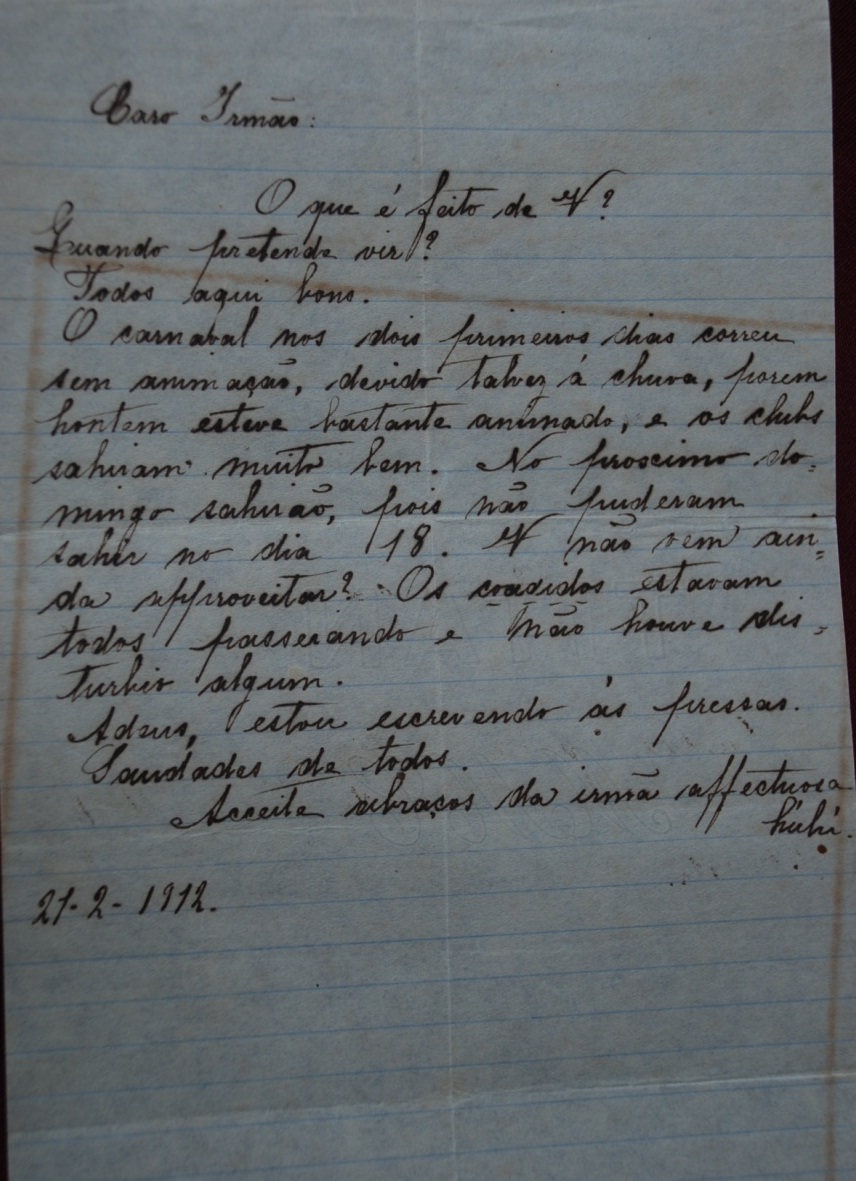 Caro Irmão:
O que é feito de V?
Quando pretende vir?
Todos aqui bons.
O carnaval nos dois primeiros dias correu
sem animação, devido talvez á chuva, porem
hontem esteve bastante animado, e os clubs
sahiram muito bem. No proscimo do=
mingo sahirão, pois não puderam
sahir no dia 18. V não vem ain=
da approveitar? Os estavam
todos passeiando e não houve dis=
turbio algum.
Adeus, estou escrevendo ás pressas.
Saudades de todos.
Acceite abraços da irmã affectuosa
21-2-1912.